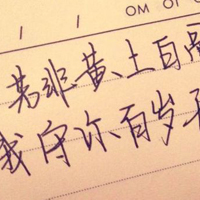 OM OT
若非黄土白骨
我守你百岁